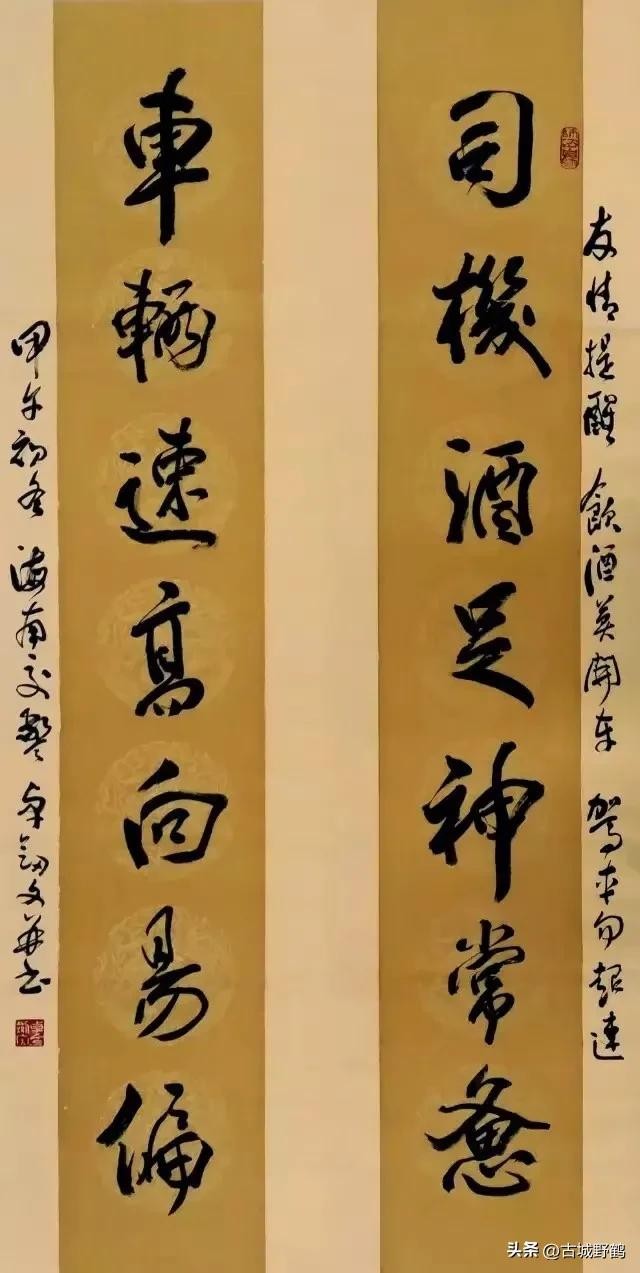 友情提醒 飲酒莫開车 驾车勿超速
司機酒足神常惫
車輛速高向易偏
甲午初冬 海南交警 卓劍文并书
头条 @古城野鹤